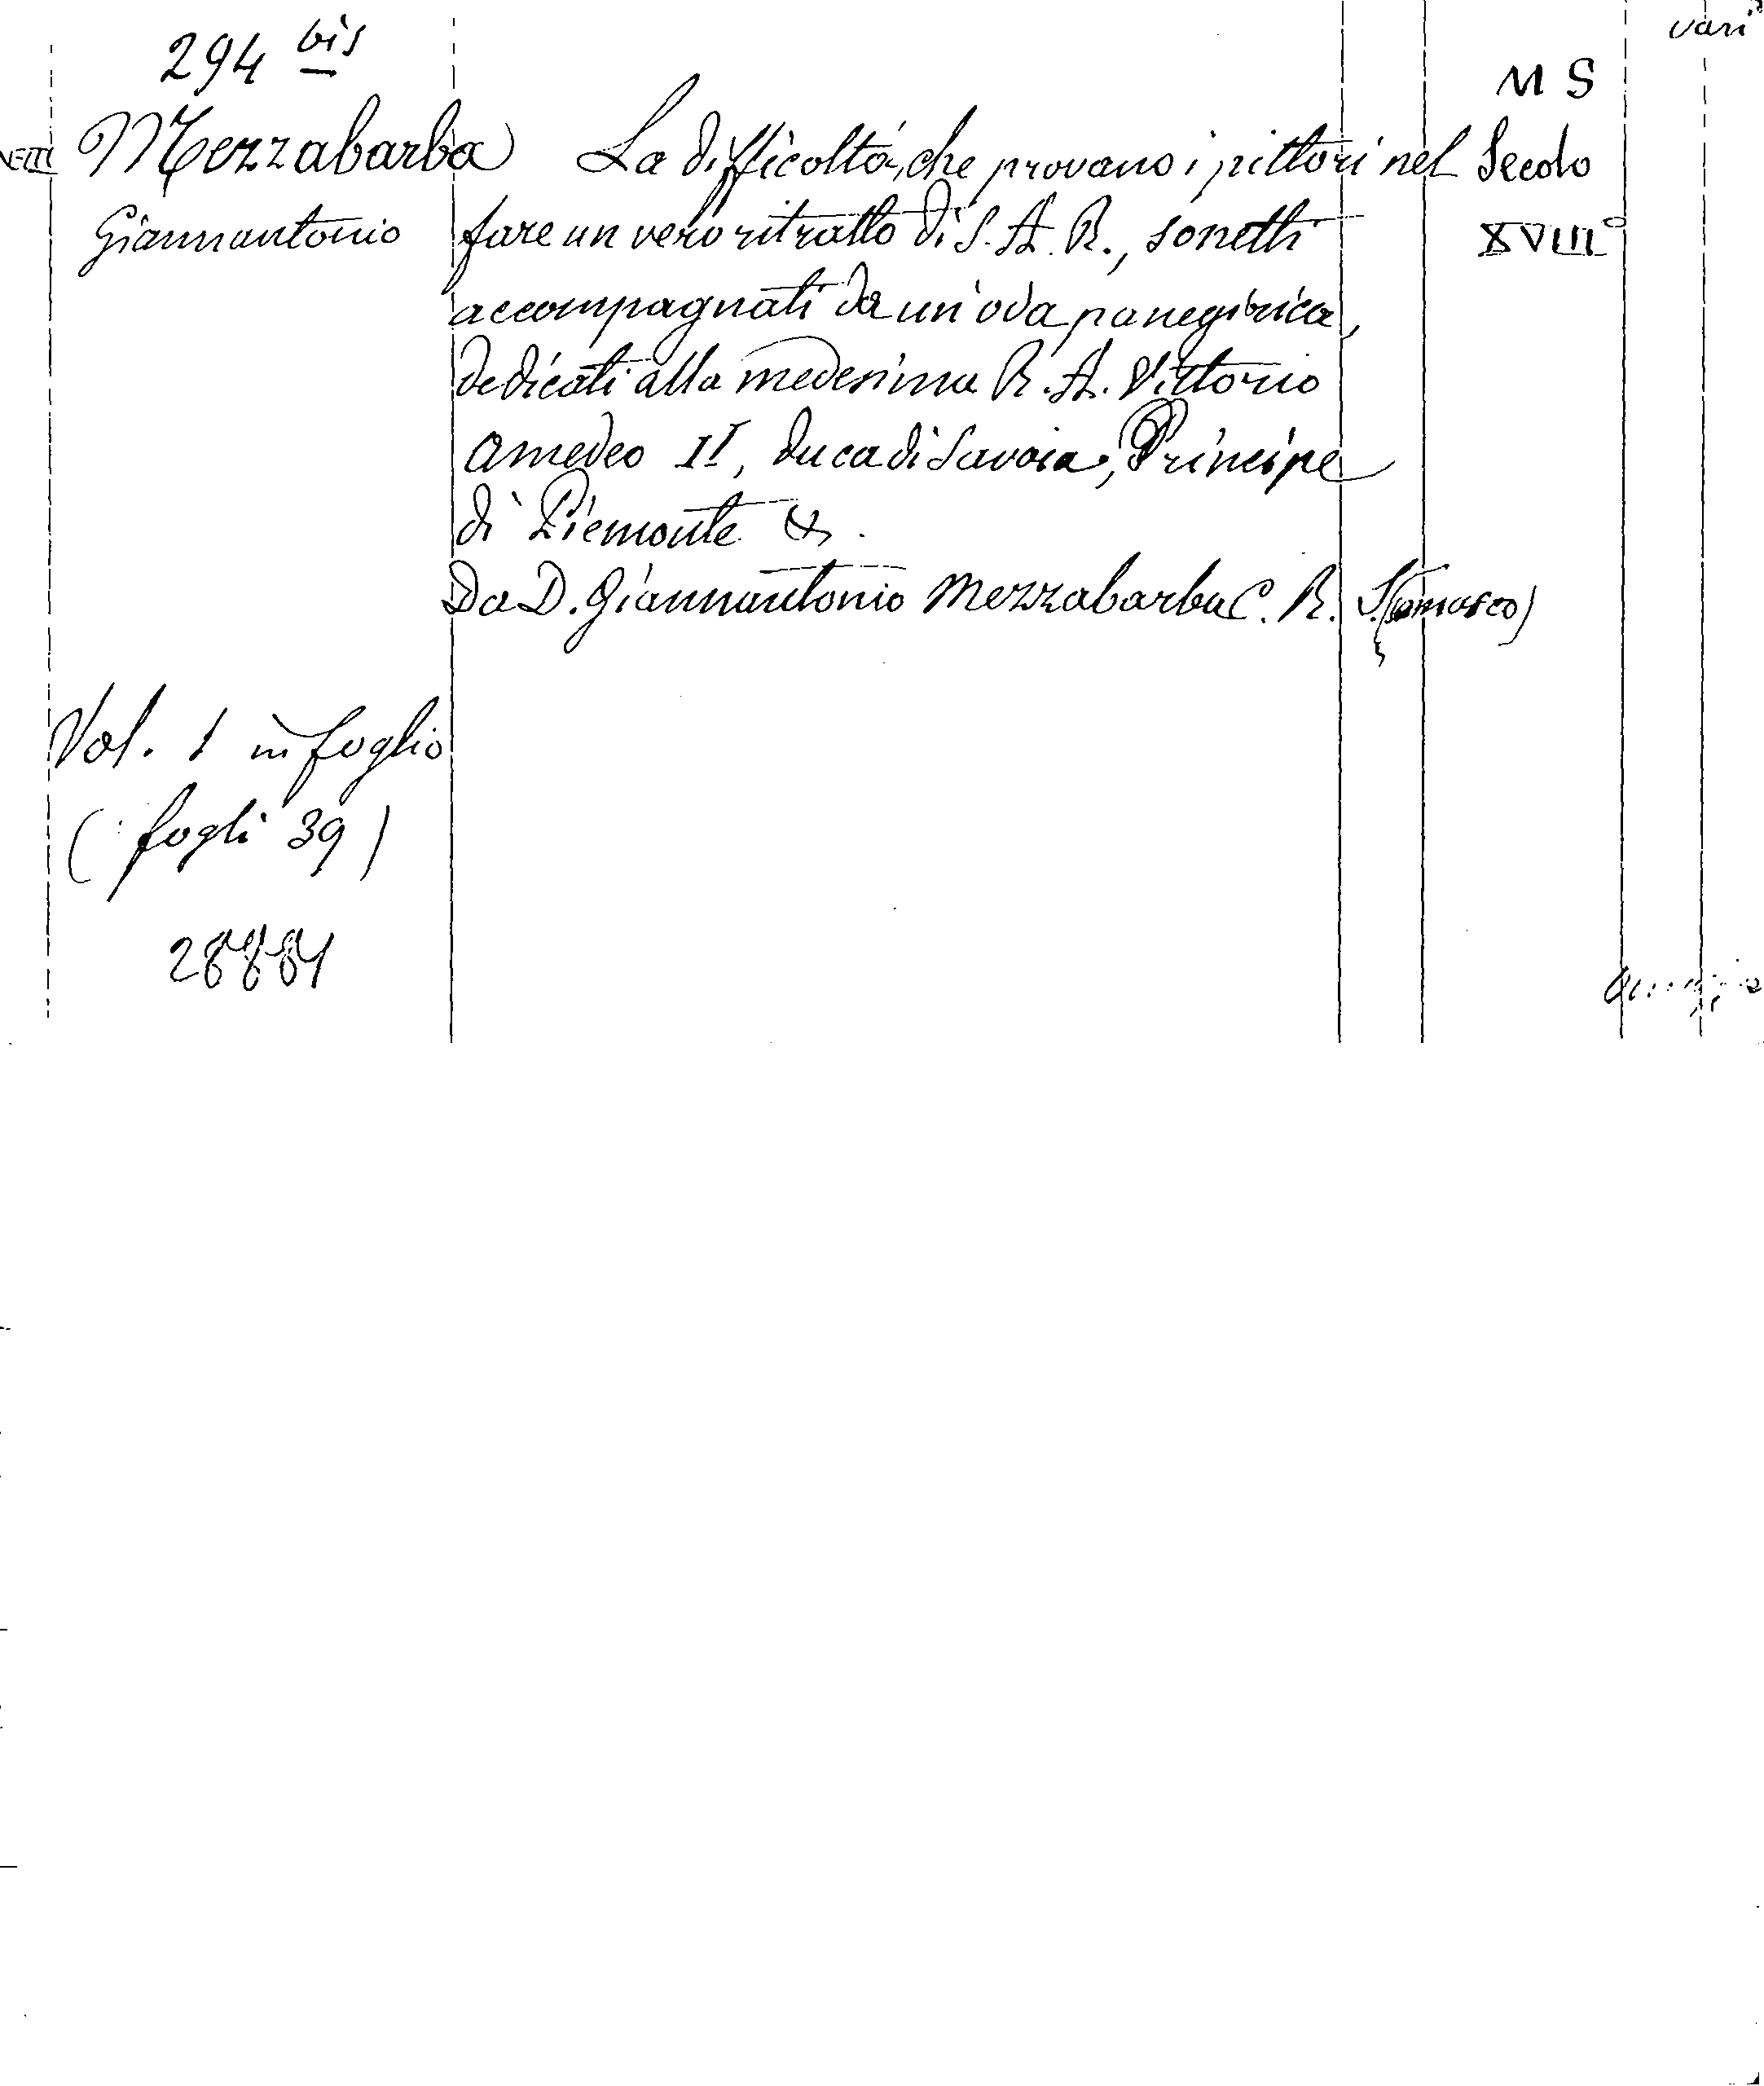 294 bis
vari
MS
Mezzabarba La difficoltà, che provano i pittori nel Secolo
Giannantonio fare un vero ritratto di S. A. R., sonetti XVIII°
accompagnati da un'oda panegirica,
dedicati alla medesima R. A. Vittorio
Amedeo II, duca di Savoia, Principe
di Piemonte &.
Da D. Giannantonio Mezzabarba C. R. S(omasco)
Vol. 1 in foglio
(fogli 39)
28881